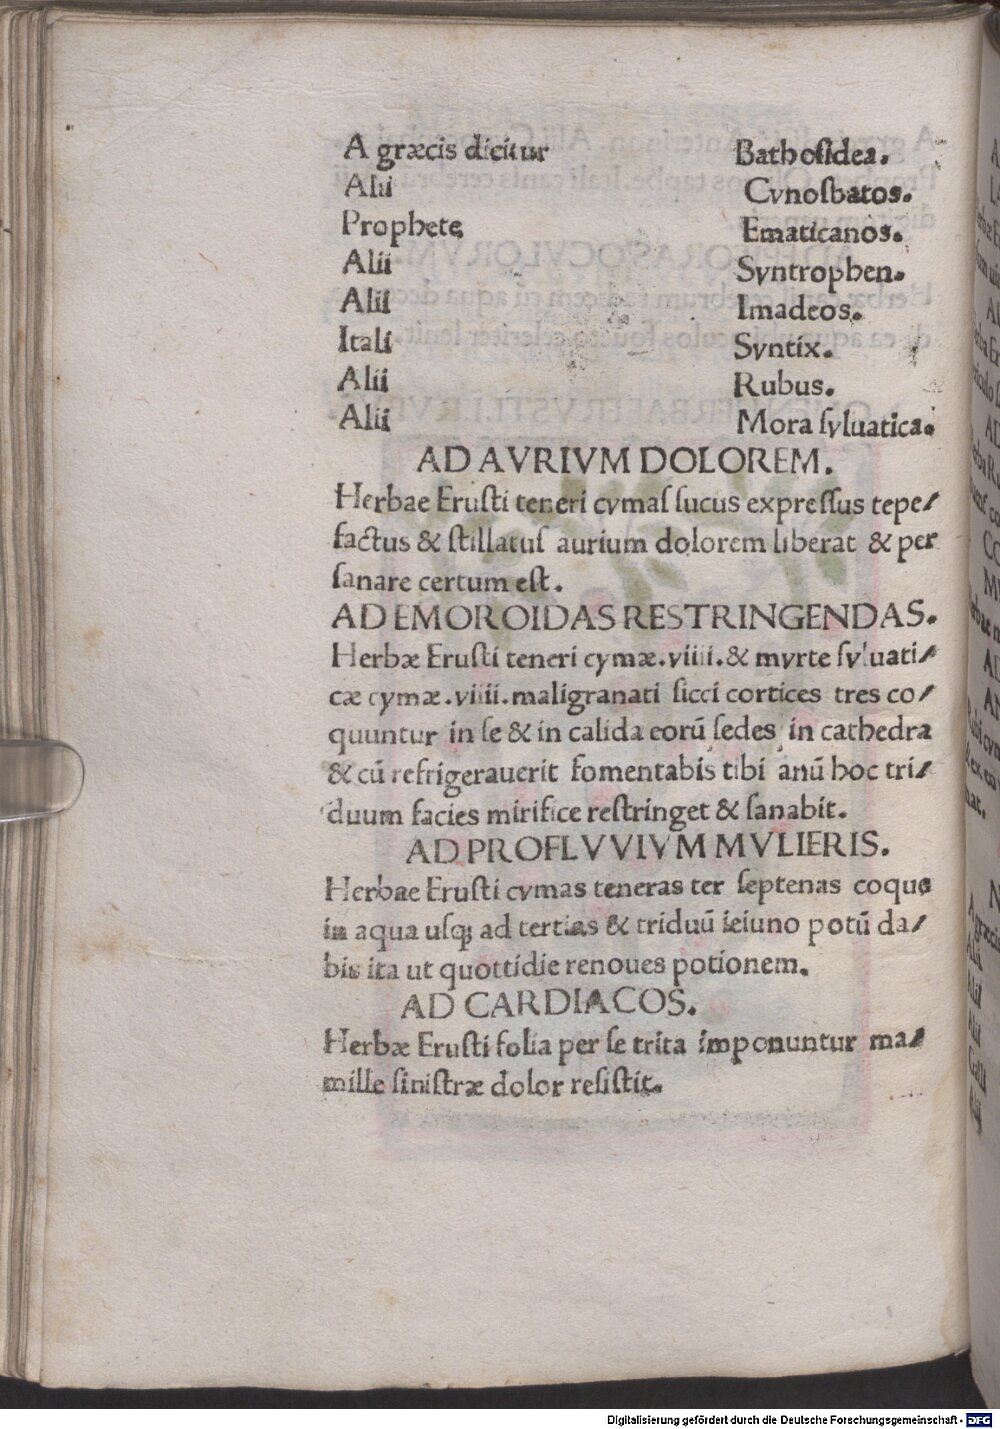 A græcis dicitur Bathoſidea.
Alii Cynoſbatos.
Prophete Ematicanos.
Alii Syntrophen.
Alii Imadeos.
Itali Syntix.
Alii Rubus.
Alii Mora ſyluatica.
AD AVRIVM DOLOREM.
Herbae Eruſti teneri cymaſ ſucus expreſſus tepe/
factus & ſtillatuſ aurium dolorem liberat & per
ſanare certum eſt.
AD EMOROIDAS RESTRINGENDAS.
Herbæ Eruſti teneri cymæ.viiii.& myrte ſyluati/
cæ cymæ.viiii.maligranati ſicci cortices tres co/
quuntur in ſe & in calida eorū ſedes in cathedra
& cū refrigerauerit fomentabis tibi anū hoc tri/
duum facies mirifice reſtringet & ſanabit.
AD PROFLVVIVM MVLIERIS.
Herbae Eruſti cymas teneras ter ſeptenas coque
in aqua uſqꝫ ad tertias & triduū ieiuno potū da/
bis ita ut quottidie renoues potionem.
AD CARDIACOS.
Herbæ Eruſti folia per ſe trita imponuntur ma/
mille ſiniſtræ dolor reſiſtit.
Digitalisierung gefördert durch die Deutsche Forschungsgemeinschaft - DFG